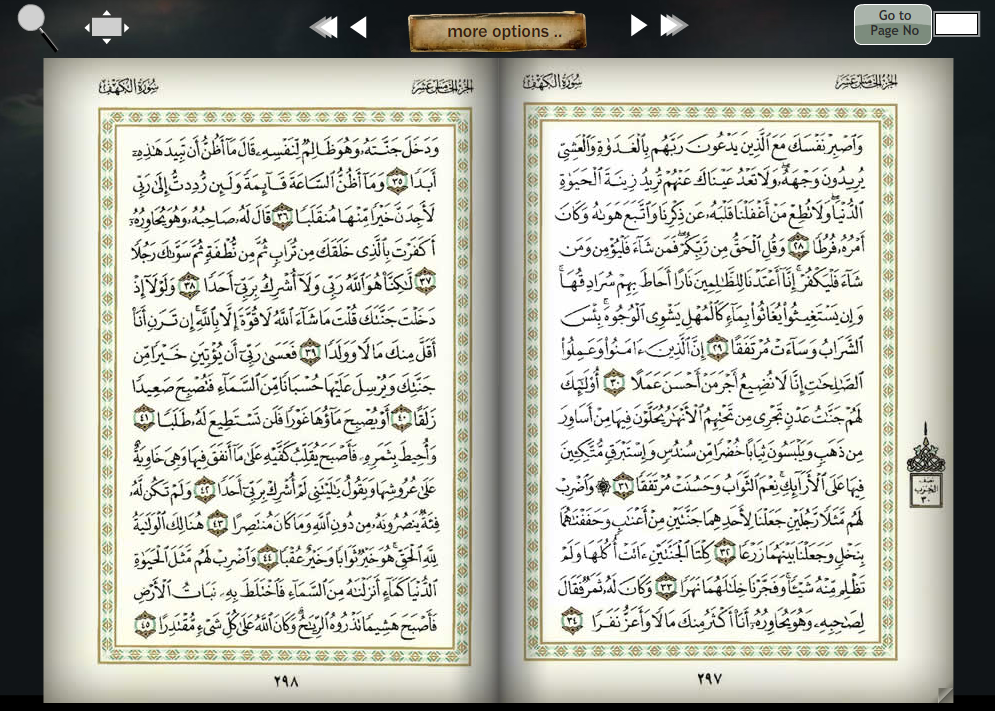 more options ..
Go to
Page No
الجزء الخامس عشر
سورة الكهف
وَٱصْبِرْ نَفْسَكَ مَعَ ٱلَّذِينَ يَدْعُونَ رَبَّهُم بِٱلْغَدَوٰةِ وَٱلْعَشِىِّ
يُرِيدُونَ وَجْهَهُۥ ۖ وَلَا تَعْدُ عَيْنَاكَ عَنْهُمْ تُرِيدُ زِينَةَ ٱلْحَيَوٰةِ
ٱلدُّنْيَا ۖ وَلَا تُطِعْ مَنْ أَغْفَلْنَا قَلْبَهُۥ عَن ذِكْرِنَا وَٱتَّبَعَ هَوَىٰهُ وَكَانَ
أَمْرُهُۥ فُرُطًا ٢٨ وَقُلِ ٱلْحَقُّ مِن رَّبِّكُمْ ۖ فَمَن شَآءَ فَلْيُؤْمِن وَمَن
شَآءَ فَلْيَكْفُرْ ۚ إِنَّآ أَعْتَدْنَا لِلظَّـٰلِمِينَ نَارًا أَحَاطَ بِهِمْ سُرَادِقُهَا ۚ
وَإِن يَسْتَغِيثُوا۟ يُغَاثُوا۟ بِمَآءٍ كَٱلْمُهْلِ يَشْوِى ٱلْوُجُوهَ ۚ بِئْسَ
ٱلشَّرَابُ وَسَآءَتْ مُرْتَفَقًا ٢٩ إِنَّ ٱلَّذِينَ ءَامَنُوا۟ وَعَمِلُوا۟
ٱلصَّـٰلِحَـٰتِ إِنَّا لَا نُضِيعُ أَجْرَ مَنْ أَحْسَنَ عَمَلًا ٣٠ أُو۟لَـٰٓئِكَ
لَهُمْ جَنَّـٰتُ عَدْنٍ تَجْرِى مِن تَحْتِهِمُ ٱلْأَنْهَـٰرُ يُحَلَّوْنَ فِيهَا مِنْ أَسَاوِرَ
مِن ذَهَبٍ وَيَلْبَسُونَ ثِيَابًا خُضْرًا مِّن سُندُسٍ وَإِسْتَبْرَقٍ مُّتَّكِـِٔينَ
فِيهَا عَلَى ٱلْأَرَآئِكِ ۚ نِعْمَ ٱلثَّوَابُ وَحَسُنَتْ مُرْتَفَقًا ٣١ ۞ وَٱضْرِبْ
لَهُم مَّثَلًا رَّجُلَيْنِ جَعَلْنَا لِأَحَدِهِمَا جَنَّتَيْنِ مِنْ أَعْنَـٰبٍ وَحَفَفْنَـٰهُمَا
بِنَخْلٍ وَجَعَلْنَا بَيْنَهُمَا زَرْعًا ٣٢ كِلْتَا ٱلْجَنَّتَيْنِ ءَاتَتْ أُكُلَهَا وَلَمْ
تَظْلِم مِّنْهُ شَيْـًٔا ۚ وَفَجَّرْنَا خِلَـٰلَهُمَا نَهَرًا ٣٣ وَكَانَ لَهُۥ ثَمَرٌ فَقَالَ
لِصَـٰحِبِهِۦ وَهُوَ يُحَاوِرُهُۥٓ أَنَا۠ أَكْثَرُ مِنكَ مَالًا وَأَعَزُّ نَفَرًا ٣٤
٢٩٧
نصف
الحزب
٣٠
الجزء الخامس عشر
سورة الكهف
وَدَخَلَ جَنَّتَهُۥ وَهُوَ ظَالِمٌ لِّنَفْسِهِۦ قَالَ مَآ أَظُنُّ أَن تَبِيدَ هَـٰذِهِۦٓ
أَبَدًا ٣٥ وَمَآ أَظُنُّ ٱلسَّاعَةَ قَآئِمَةً وَلَئِن رُّدِدتُّ إِلَىٰ رَبِّى
لَأَجِدَنَّ خَيْرًا مِّنْهَا مُنقَلَبًا ٣٦ قَالَ لَهُۥ صَاحِبُهُۥ وَهُوَ يُحَاوِرُهُۥٓ
أَكَفَرْتَ بِٱلَّذِى خَلَقَكَ مِن تُرَابٍ ثُمَّ مِن نُّطْفَةٍ ثُمَّ سَوَّىٰكَ رَجُلًا
٣٧ لَّـٰكِنَّا۠ هُوَ ٱللَّهُ رَبِّى وَلَآ أُشْرِكُ بِرَبِّىٓ أَحَدًا ٣٨ وَلَوْلَآ إِذْ
دَخَلْتَ جَنَّتَكَ قُلْتَ مَا شَآءَ ٱللَّهُ لَا قُوَّةَ إِلَّا بِٱللَّهِ ۚ إِن تَرَنِ أَنَا۠
أَقَلَّ مِنكَ مَالًا وَوَلَدًا ٣٩ فَعَسَىٰ رَبِّىٓ أَن يُؤْتِيَنِ خَيْرًا مِّن
جَنَّتِكَ وَيُرْسِلَ عَلَيْهَا حُسْبَانًا مِّنَ ٱلسَّمَآءِ فَتُصْبِحَ صَعِيدًا
زَلَقًا ٤٠ أَوْ يُصْبِحَ مَآؤُهَا غَوْرًا فَلَن تَسْتَطِيعَ لَهُۥ طَلَبًا ٤١
وَأُحِيطَ بِثَمَرِهِۦ فَأَصْبَحَ يُقَلِّبُ كَفَّيْهِ عَلَىٰ مَآ أَنفَقَ فِيهَا وَهِىَ خَاوِيَةٌ
عَلَىٰ عُرُوشِهَا وَيَقُولُ يَـٰلَيْتَنِى لَمْ أُشْرِكْ بِرَبِّىٓ أَحَدًا ٤٢ وَلَمْ تَكُن لَّهُۥ
فِئَةٌ يَنصُرُونَهُۥ مِن دُونِ ٱللَّهِ وَمَا كَانَ مُنتَصِرًا ٤٣ هُنَالِكَ ٱلْوَلَـٰيَةُ
لِلَّهِ ٱلْحَقِّ ۚ هُوَ خَيْرٌ ثَوَابًا وَخَيْرٌ عُقْبًا ٤٤ وَٱضْرِبْ لَهُم مَّثَلَ ٱلْحَيَوٰةِ
ٱلدُّنْيَا كَمَآءٍ أَنزَلْنَـٰهُ مِنَ ٱلسَّمَآءِ فَٱخْتَلَطَ بِهِۦ نَبَاتُ ٱلْأَرْضِ
فَأَصْبَحَ هَشِيمًا تَذْرُوهُ ٱلرِّيَـٰحُ ۗ وَكَانَ ٱللَّهُ عَلَىٰ كُلِّ شَىْءٍ مُّقْتَدِرًا ٤٥
٢٩٨